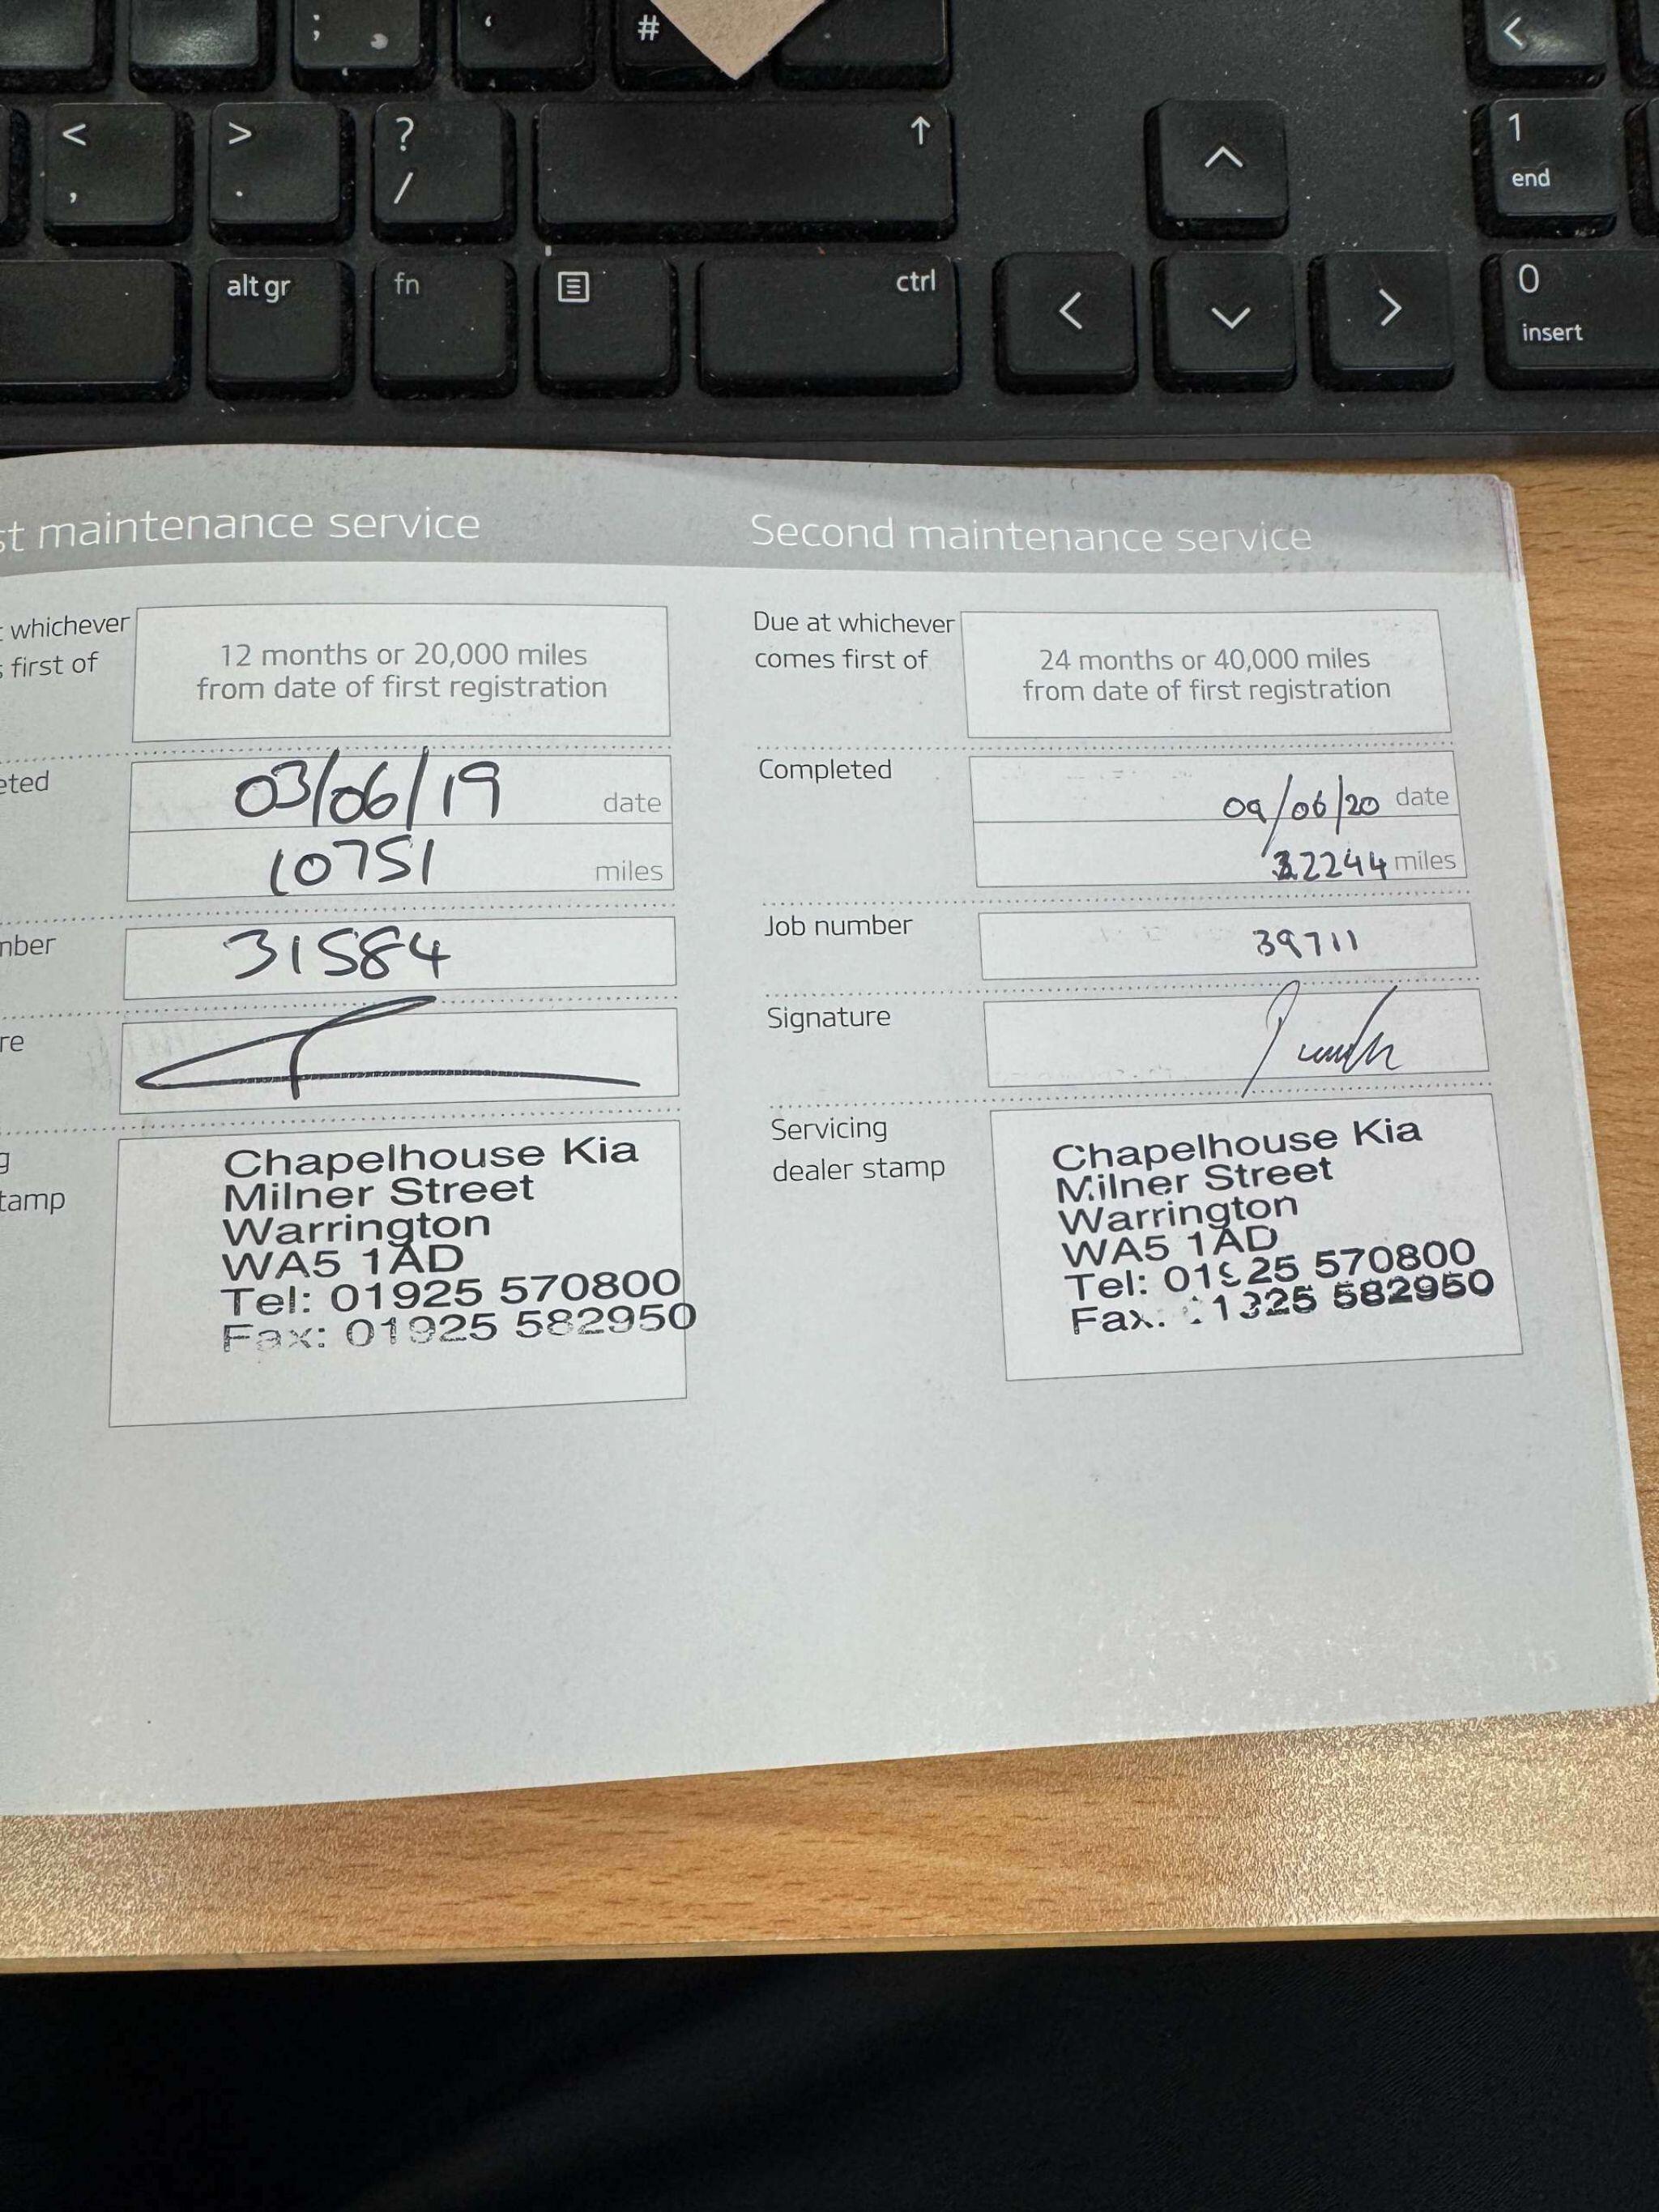 ;
‘
#
<
<
,
>
.
?
/
↑
^
1
end
alt gr
fn
ctrl
<
>
0
insert
st maintenance service
whichever
first of
12 months or 20,000 miles
from date of first registration
eted
03/06/19 date
10751 miles
mber
31584
re
g
tamp
Chapelhouse Kia
Milner Street
Warrington
WA5 1AD
Tel: 01925 570800
Fax: 01925 582950
Second maintenance service
Due at whichever
comes first of
24 months or 40,000 miles
from date of first registration
Completed
09/06/20 date
miles
Job number
39711
Signature
Servicing
dealer stamp
Chapelhouse Kia
Milner Street
Warrington
WA5 1AD
Tel: 01925 570800
Fax. 1925 582950
15